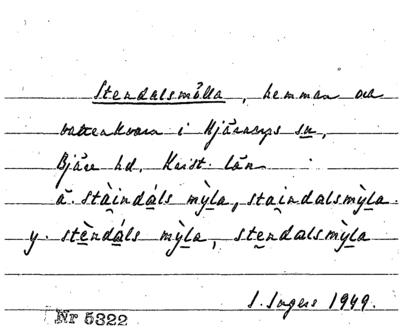 Stendalsmölla, hemman och
vattenkvarn i Hjärnarps sn,
Bjäre hd. Krist. län
ä. stàindáls mỳla, staindalsmỳla.
y. stèndáls mỳla, stendalsmỳla
I. Ingers 1949.
Nr 5322